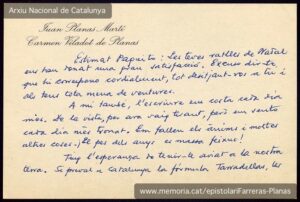 Arxiu Nacional de Catalunya
Juan Planas Martí
Carmen Veladot de Planas
Estimat Paquito: Les teves ratlles de Nadal
ens han donat una gran satisfacció. Excuso dir-te,
que hi correspono cordialment, tot desitjant-vos a tu i
als teus tota mena de ventures.
A mi també, l'escriure em costa cada dia
més. De la vista, per ara vaig tirant, però em sento
cada dia més tronat. Em fallen els ànims i moltes
altres coses. I per dir anys es massa feixuc!
Tinc l'esperança de tenir-te aviat a la nostra
terra. Si puja a Catalunya la fórmula Tarradellas, les
www.memoria.cat/epistolariFarreras-Planas